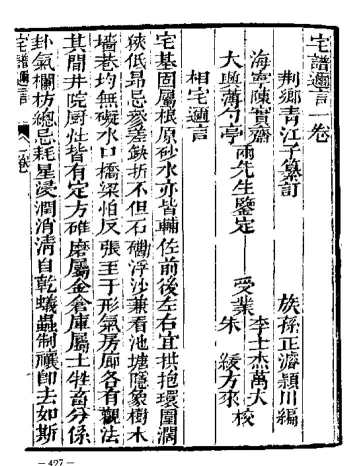 宅譜邇言一卷
荆鄉青江子纂訂 族孫正濬潁川編
海寧陳實齋
大興薄勺亭 兩先生鑒定 受業 李士杰萬大
朱綬方來 校
相宅邇言
宅基固屬根原砂水亦皆輔佐前後左右宜拱抱環圍濶
狹低昂忌參差缺折不但石磵浮沙兼看池塘隱象樹木
墻巷均無礙水口橋梁怕反張至于形氣房廊各有觀法
其間井院厨灶皆有定方碓磨屬金倉庫屬土牲畜分係
卦氣欄枋總忌耗星浸潤消淸自乾蟻蟲制禳卽去如斯
宅譜邇言 卷
— 427 —